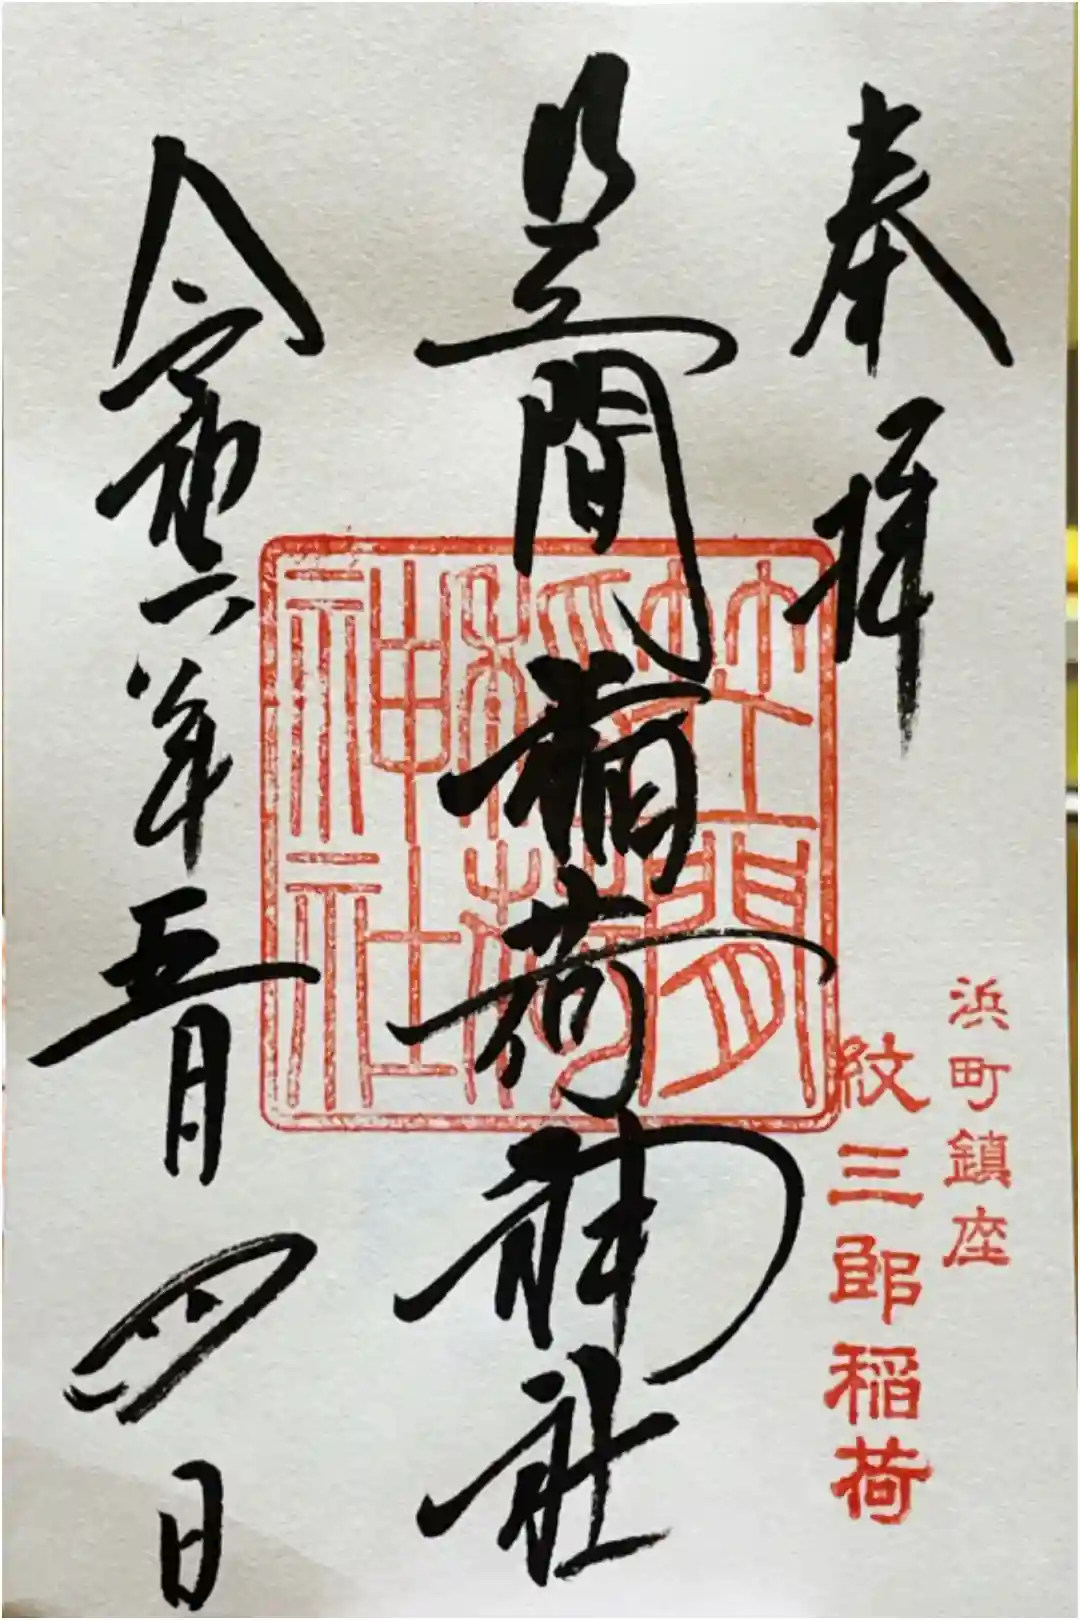 奉拝
浜町鎮座
紋三郎稲荷
笠間稲荷神社
笠間稲荷神社
令和六年五月四日